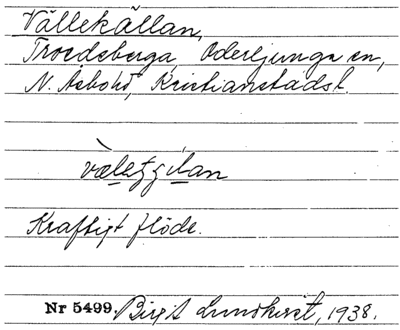 Vällekällan,
Troedsberga, Oderljunga sn,
N. Åsbohd, Kristianstadsl.
Kraftigt flöde.
Nr 5499. Birgit Lundkvist, 1938.